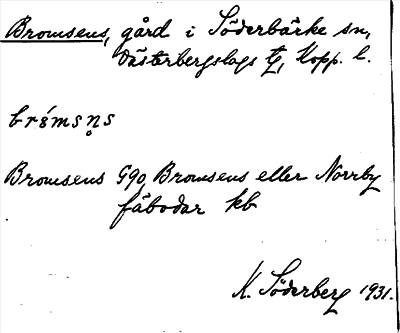 Bromsens, gård i Söderbärke sn,
Västerbergslags tg, Kopp. l.
brómsn̥s
Bromsens G90, Bromsens eller Norrby
fäbodar kb
K. Söderberg 1931.